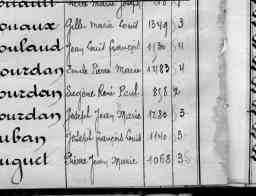 ouaux Gilles Marie Louis 1349 3
oulaud Jean Louis François 1130 4
ourdan Emile Pierre Marie 1283 4
ourdan Eugène René Paul 858 2
ourdan Joseph Jean Marie 1280 3
ouban Joseph François Louis 1140 3
uguet Pierre Jean Marie 1068 3